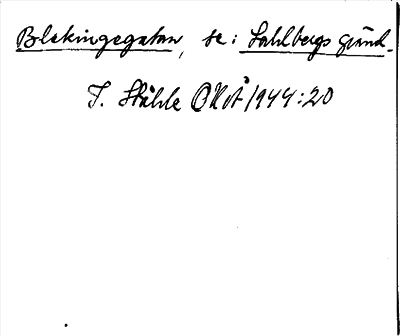 Blekingegatan, se: Sahlbergs gränd.
T. Ståhle OKÅ 1944:20